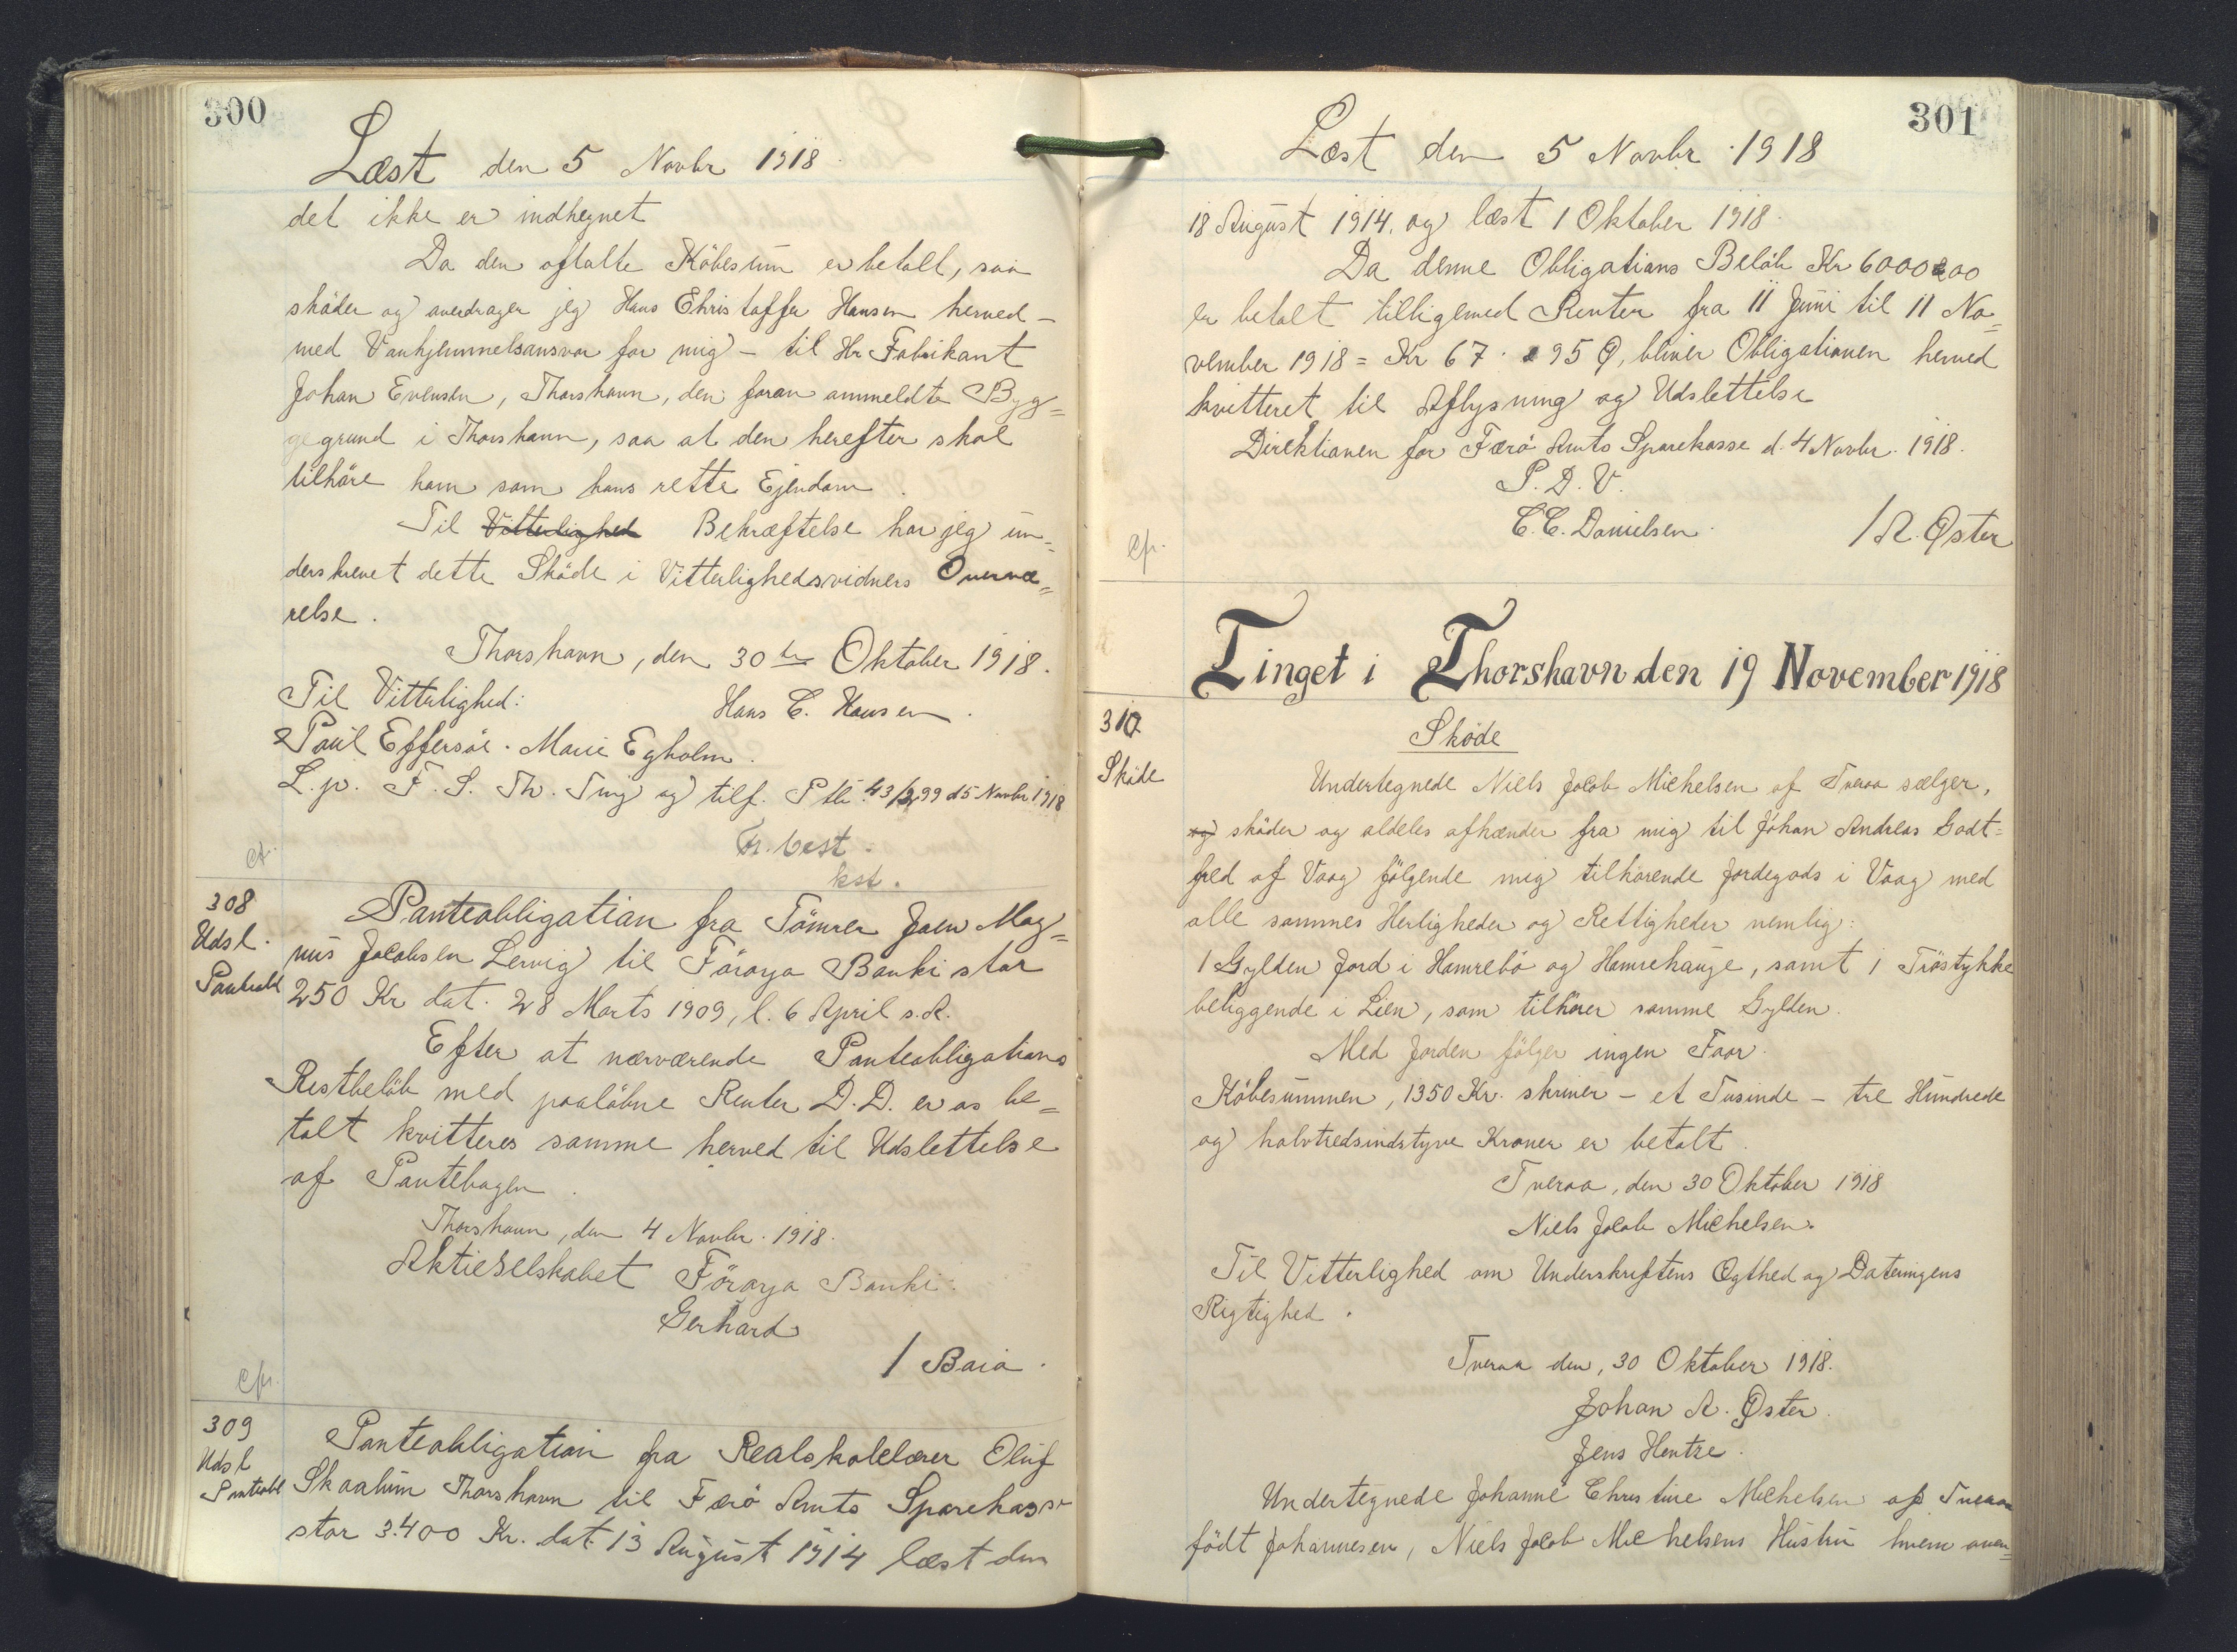 300
Læst den 5 Novbr 1918.
det ikke er indhegnet
Da den aftalte Köbesum er betalt, saa
sköder og overdrager jeg Hans Christoffer Hansen herved –
med Vanhjemmelsansvar for mig – til Hr. Fabrikant
Johan Evensen, Thorshavn, den foran ommeldte Byg=
gegrund i Thorshavn, saa at den herefter skal
tilhöre ham som hans rette Ejendom.
Til Vitterlighed Bekræftelse har jeg un=
derskrevet dette Sköde i Vitterlighedsvidners Overvæ=
relse.
Thorshavn, den 30te Oktober 1918.
Til Vitterlighed: Hans C. Hansen.
Paul Effersöe. Marie Egholm.
L. p. F. S. Th. Ting og tilf. P tk. 43/299 d 5 Novbr 1918
Tr. best.
kst.
308
Udsl.
Panteobl
Panteobligation fra Tömrer Joen Mag=
nus Jacobsen Lervig til Föroya Banki stor
250 Kr dat. 28 Marts 1909, l. 6 April s.A.
Efter at nærværende Panteobligations
Restbelöb med paalöbne Renter D.D. er os be=
talt kvitteres samme herved til Udslettelse
af Pantebogen.
Thorshavn, den 4 Novbr. 1918.
Aktieselskabet Föroya Banki.
Gerhard
/ Baia.
cfr.
309
Udsl
Panteobl
Panteobligation fra Realskolelærer Oluf
Skaalum Thorshavn til Færö Amts Sparekasse
stor 3.400 Kr. dat. 13 August 1914 læst den
301
Læst den 5 Novbr. 1918
18 August 1914. og læst 1 Oktober 1918.
Da denne Obligations Belöb Kr 6000 00
er betalt tilligemed Renter fra 11 Juni til 11 No=
vember 1918 = Kr 67. 95 Ø, bliver Obligationen herved
kvitteret til Aflysning og Udslettelse
Direktionen for Færö Amts Sparekasse d. 4 Novbr. 1918.
P. D. V.
C. C. Danielsen. / A. Øster
cfr.
Tinget i Thorshavn den 19 November 1918
310
Sköde
Sköde
Undertegnede Niels Jacob Michelsen af Tveraa sælger,
og sköder og aldeles afhænder fra mig til Johan Andreas Godt=
fred af Vaag fölgende mig tilhörende Jordegods i Vaag med
alle sammes Herligheder og Rettigheder nemlig:
1 Gylden Jord i Hamrebö og Hamrehauge, samt 1 Tröstykke
beliggende i Lien, som tilhörer samme Gylden.
Med Jorden fölger ingen Faar.
Köbesummen, 1350 Kr. skriver – et Tusinde – tre Hundrede
og halvtredsindstyve Kroner er betalt.
Tveraa, den 30 Oktober 1918
Niels Jacob Michelsen.
Til Vitterlighed om Underskriftens Ægthed og Dateringens
Rigtighed.
Tveraa den, 30 Oktober 1918.
Johan A. Øster.
Jens Hentze.
Undertegnede Johanne Christine Michelsen af Tveraa
födt Johannesen, Niels Jacob Michelsens Hustru hvem oven=